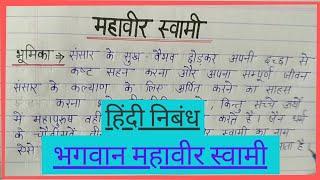 महावीर स्वामी
भूमिका ⇒ संसार के सुख-वैभव छोड़कर अपनी इच्छा से
कष्ट सहन करना और अपना सम्पूर्ण जीवन
संसार के कल्याण के लिए अर्पित करने का साहस
करना किन्तु सच्चे अर्थों
में महापुरुष वही करते हैं। जैन धर्म
के चौबीसवें
हिंदी निबंध
भगवान महावीर स्वामी